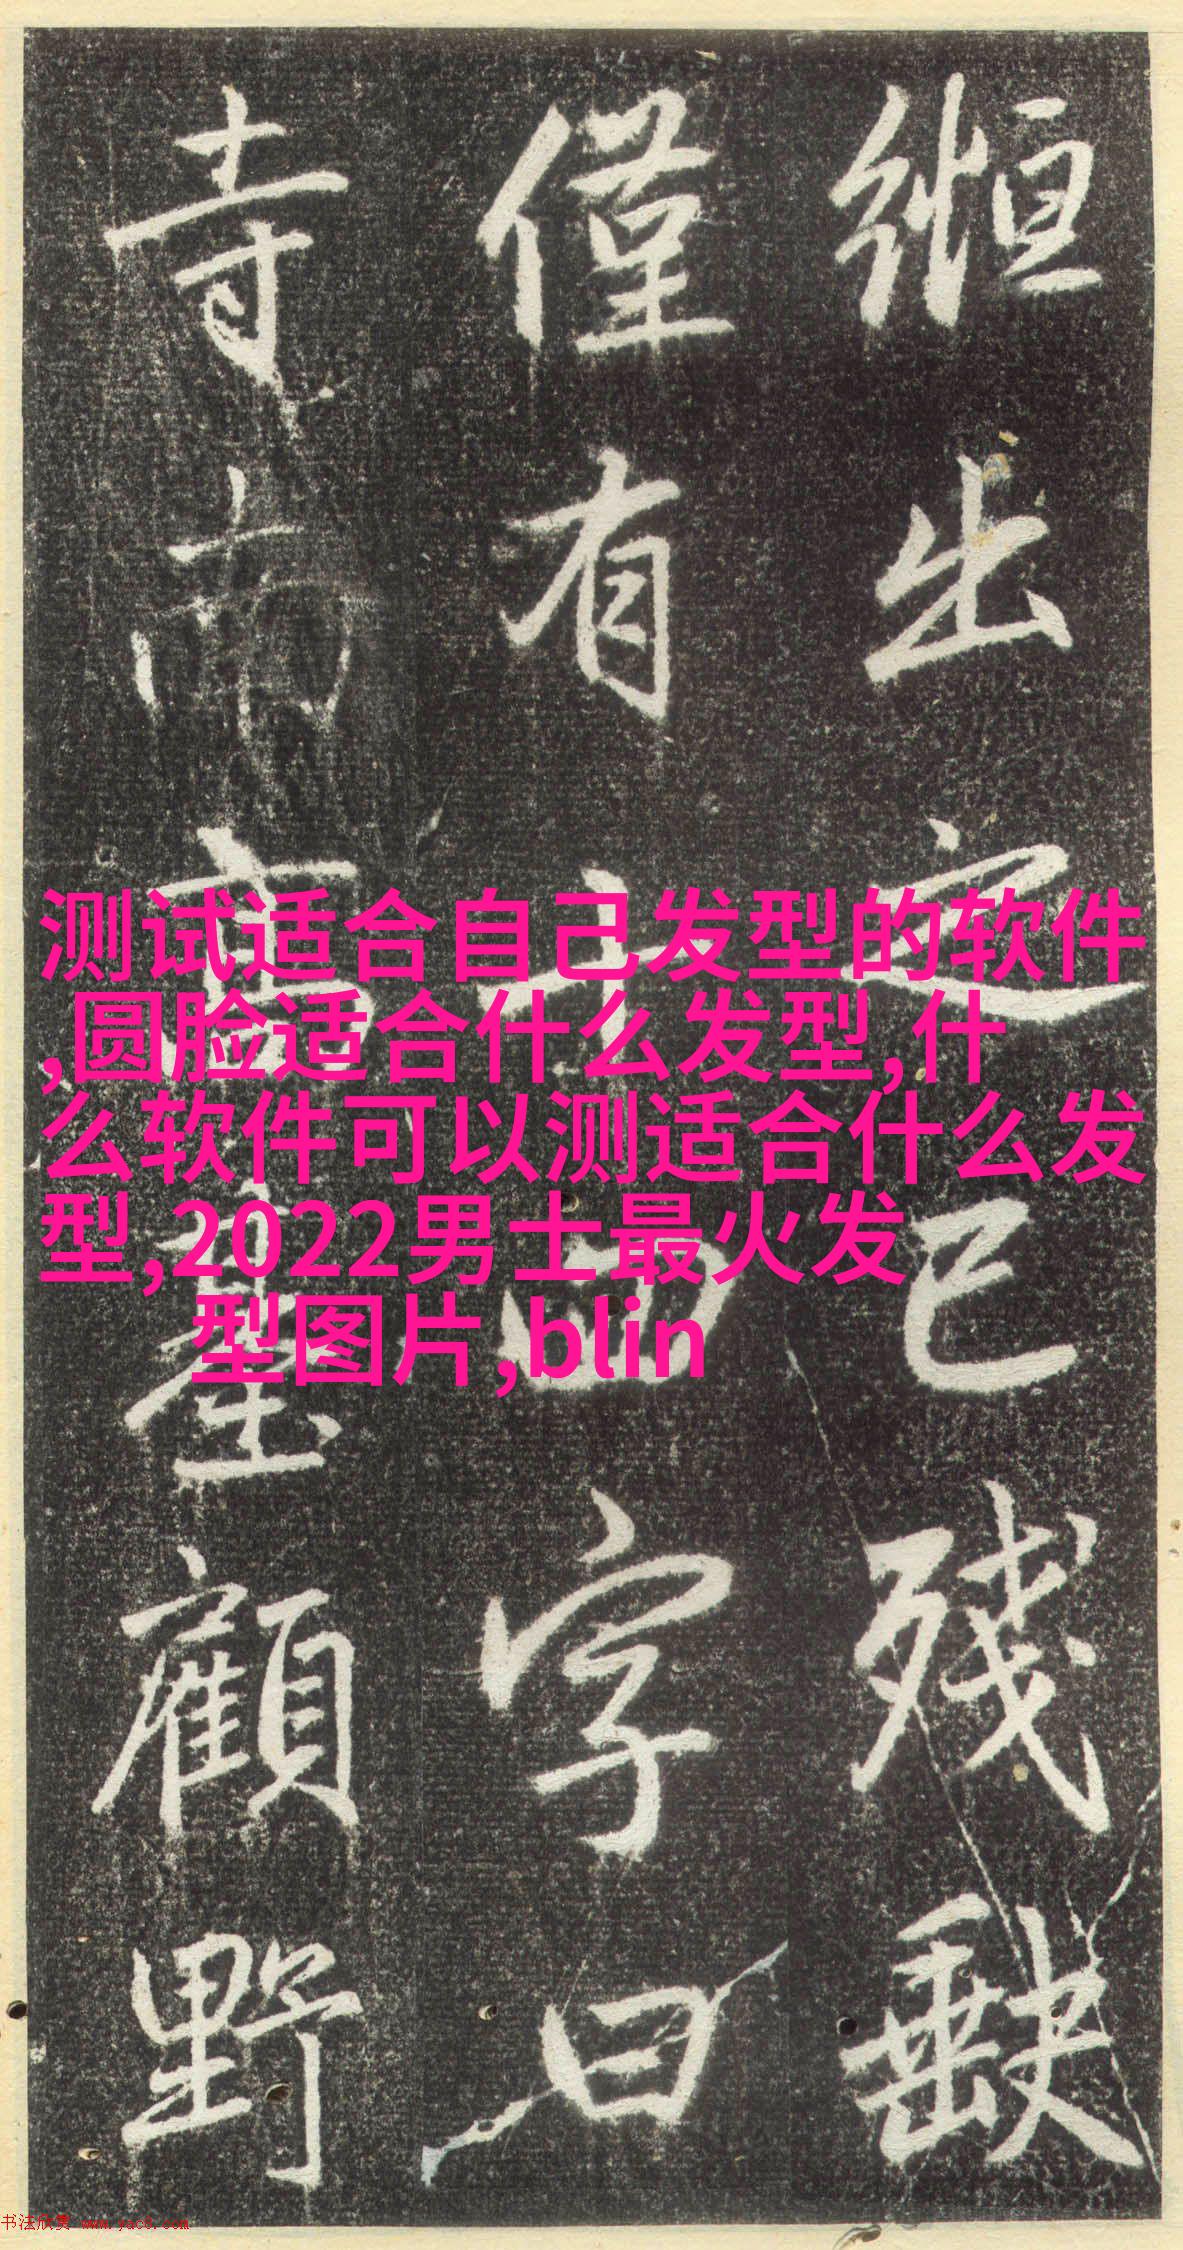 出之已残缺
僅有十四字曰
寺南高臺顧野
测试适合自己发型的软件
,圆脸适合什么发型,什
么软件可以测适合什么发
型,2022男士最火发
型图片,blin
书法欣赏 www.yac8.com